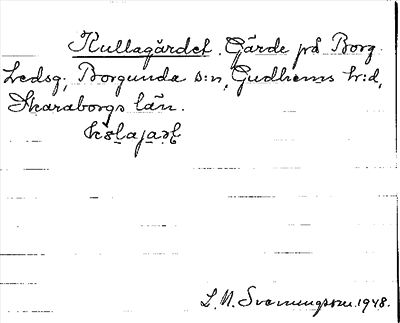 Kullagärdet. Gärde på Borg.
Ledsg, Borgunda s:n, Gudhems h:d,
Skaraborgs län.
L. N. Svenungsson. 1948.